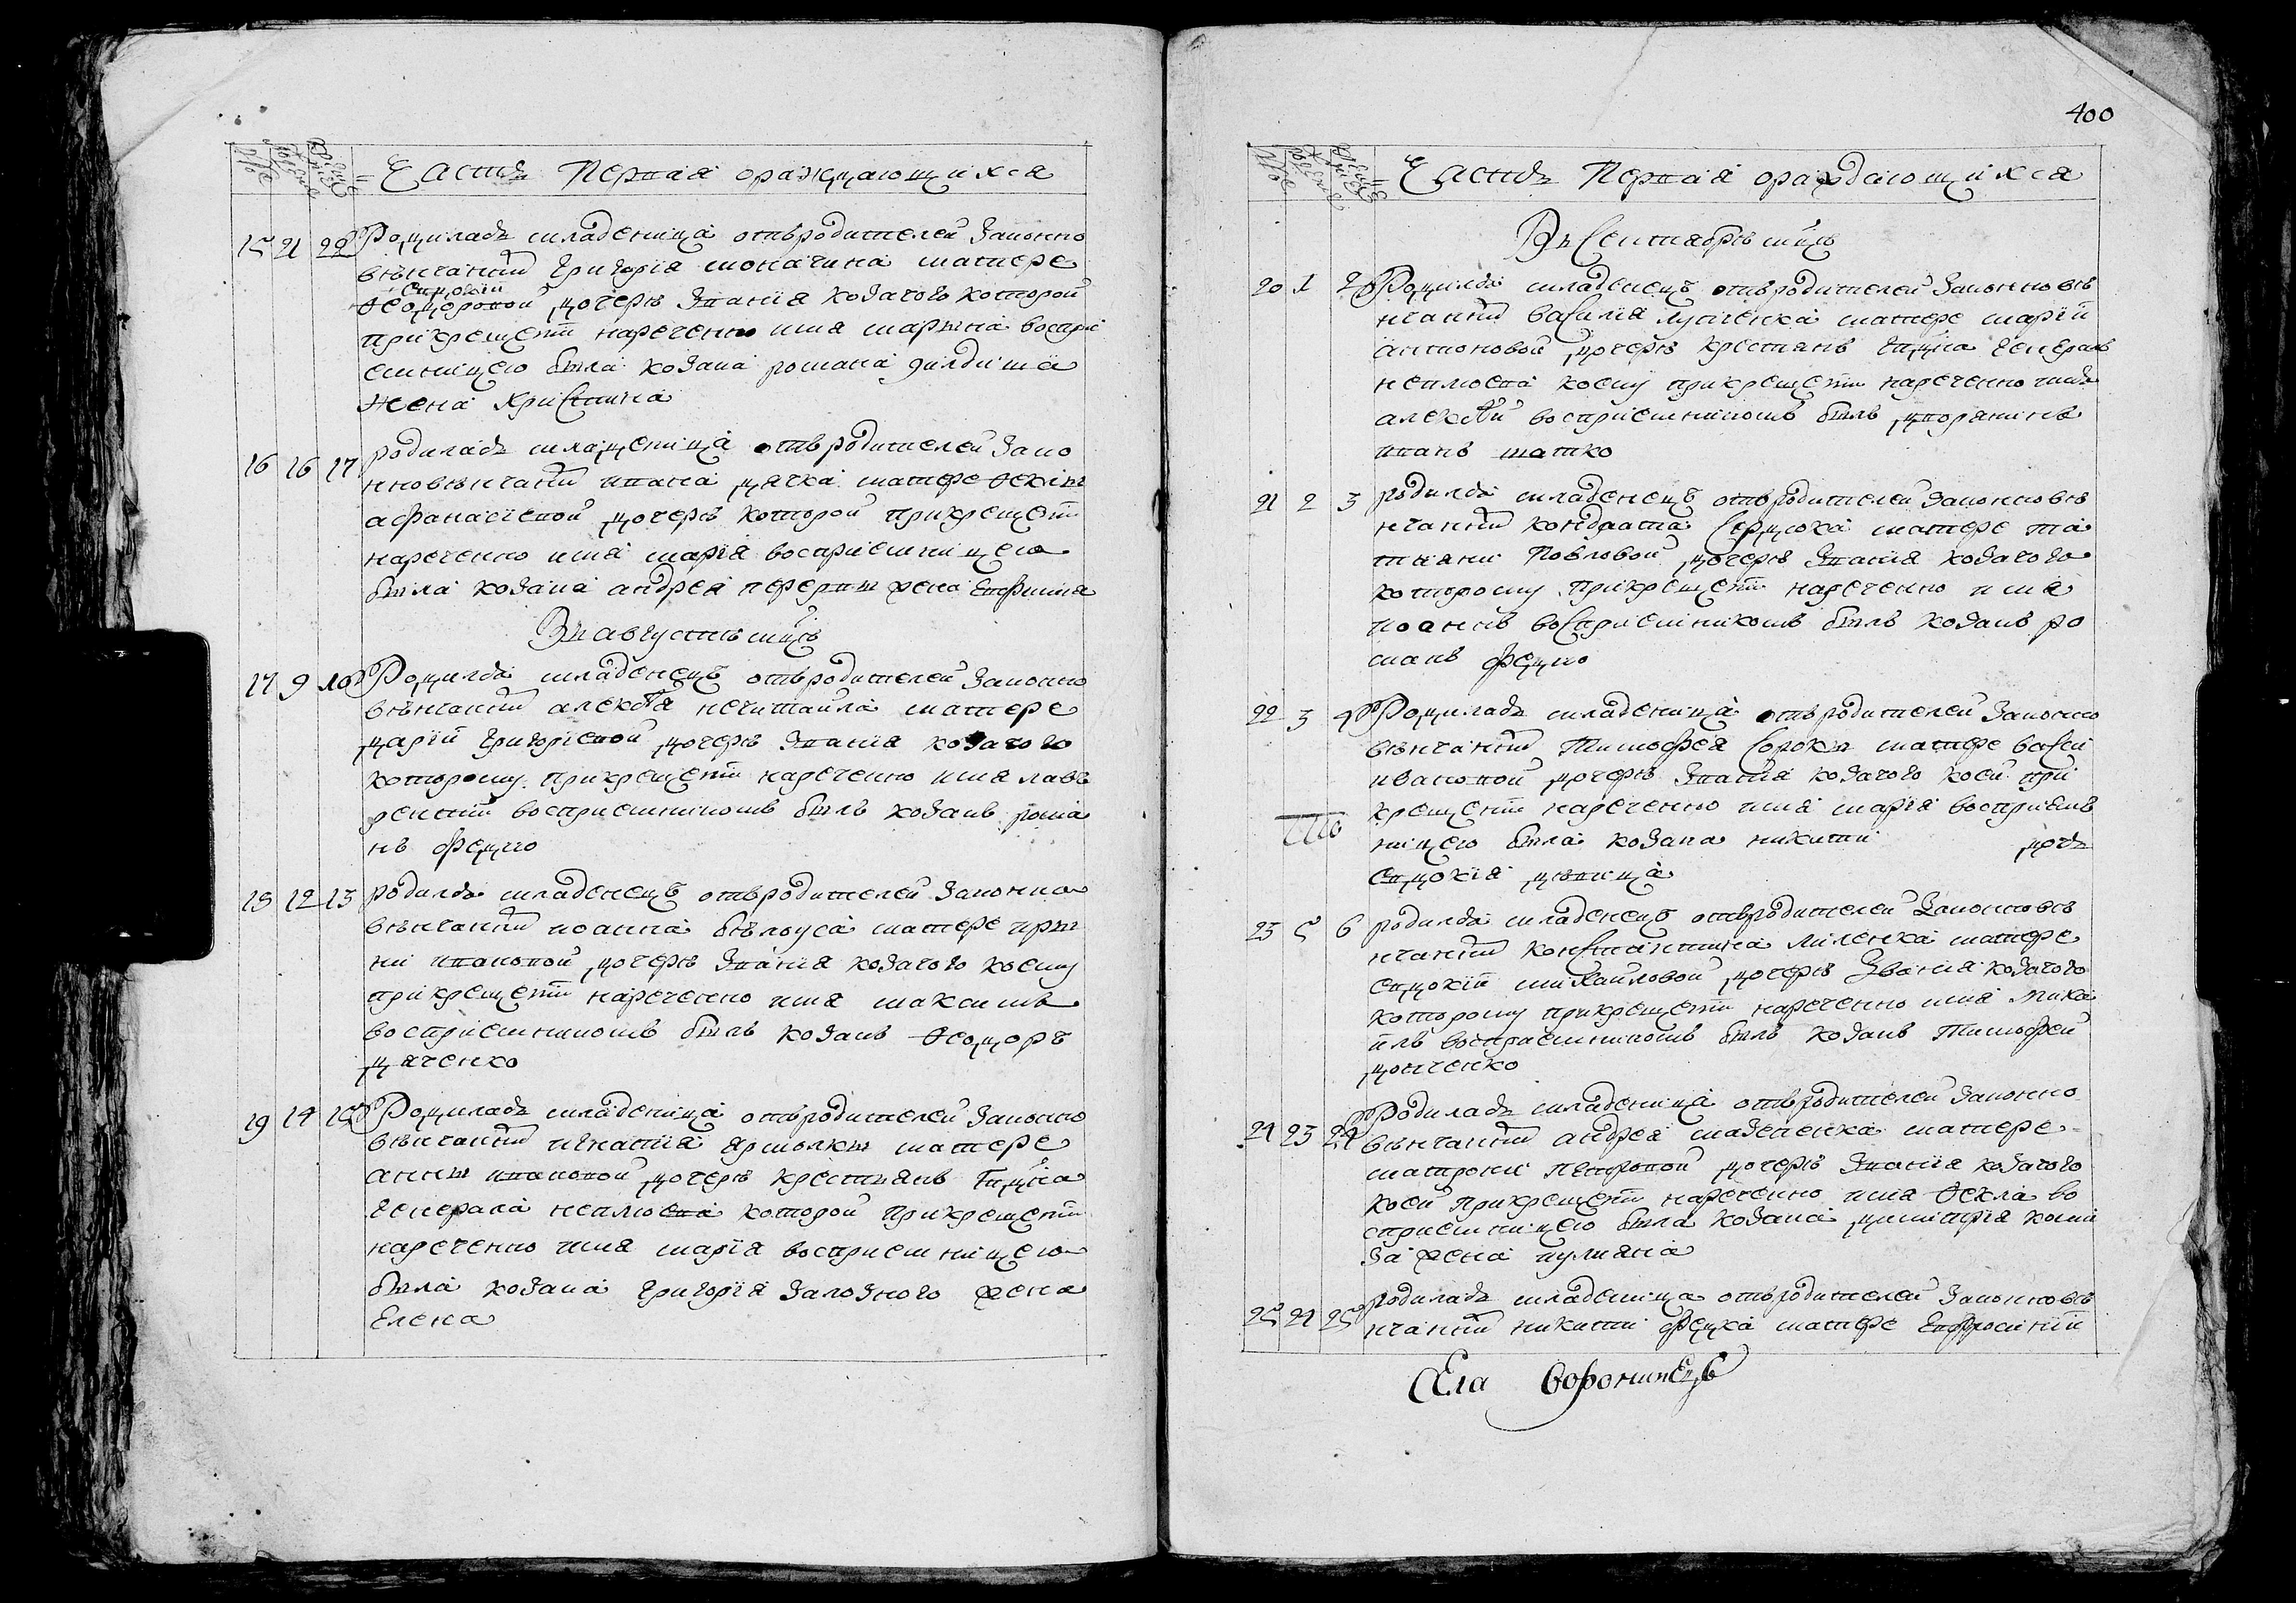 Часть Первая ораждающихся
15 21 22 Родилась младеница отъ родителей законно
вѣнчаннй григорія моначина матере
Евдокіи
Ѳеодоровой дочерь званія козачого которой
прикрещенїи нареченно имя марина воспрі
емницею была козана романа
жена христина
16 16 17 родилась младеница отъ родителей зако
нновѣнчаннй ивана дячка матере Ѳеклы
афанасіевой дочерь которой прикрещенїи
нареченно имя марія воспріемницею
была козана андрея жена Евфимия
Въ августѣ мцѣ
17 9 10 Родился младенецъ отъ родителей законно
вѣнчаннй алексѣя нечитайла матере
дарїи григоріевой дочерь званія козачого
которому прикрещенїи нареченно имя лавъ
рентїй воспріемникомъ былъ козакъ рома
нъ федко
18 12 13 родился младенецъ отъ родителей законно
вѣнчаннй иоанна бѣлоуса матере иры
ни ивановой дочерь званія козачого коему
прикрещенїи нареченно имя максимъ
воспріемникомъ былъ козакъ Ѳеодоръ
дяченко
19 14 15 Родилась младеница отъ родителей законно
вѣнчаннй игнатія ярмолки матере
анны ивановой дочерь крестьянъ Гпдна
генерала неплюева которой прикрещенїи
нареченно имя марїя воспріемницею
была козана григорїя залозного жена
Елена
400
Часть Первая ораждающихся
Въ Сентябрѣ мцѣ
20 1 2 Родился младенецъ отъ родителей законновѣ
нчаннй василїя лутченка матере марїи
антоновой дочерь крестянъ гпдна генералъ
неплюева коему прикрещенїи нареченно имя
алексѣй воспріемникомъ былъ дворянинъ
иванъ матко
21 2 3 родился младенецъ отъ родителей законновѣ
нчаннй кондрата Сердюка матере та
тияни Повловой дочерь званія козачого
которому прикрещенїи нареченно имя
иоаннъ воспріемникомъ былъ козакъ ро
манъ федко
22 3 4 Родилась младеница отъ родителей законно
вѣнчаннй Тимофея Сороки матере васси
ивановой дочерь званія козачого коей при
крещенїи нареченно имя марїя воспріем
ницею была козака никитии дочь
евдокїя дѣвица
23 5 6 родился младенецъ отъ родителей законновѣ
нчаннй Константина Миленка матере
евдокїи михайловой дочерь званія козачого
которому прикрещенїи нареченно имя миха
илъ воспріемникомъ былъ козакъ Тимофей
донченко
24 23 24 Родилась младеница отъ родителей законно
вѣнчаннй андрея мазепенка матере
матрони Петровой дочерь званія козачого
коей прикрещенїи нареченно имя Ѳекла во
спріемницею была козака димитрїя коми
за жена иулияна
25 24 25 родилась младеница отъ родителей законновѣ
нчаннй никити федка матере Евфросинїи
Села Воронинецъ